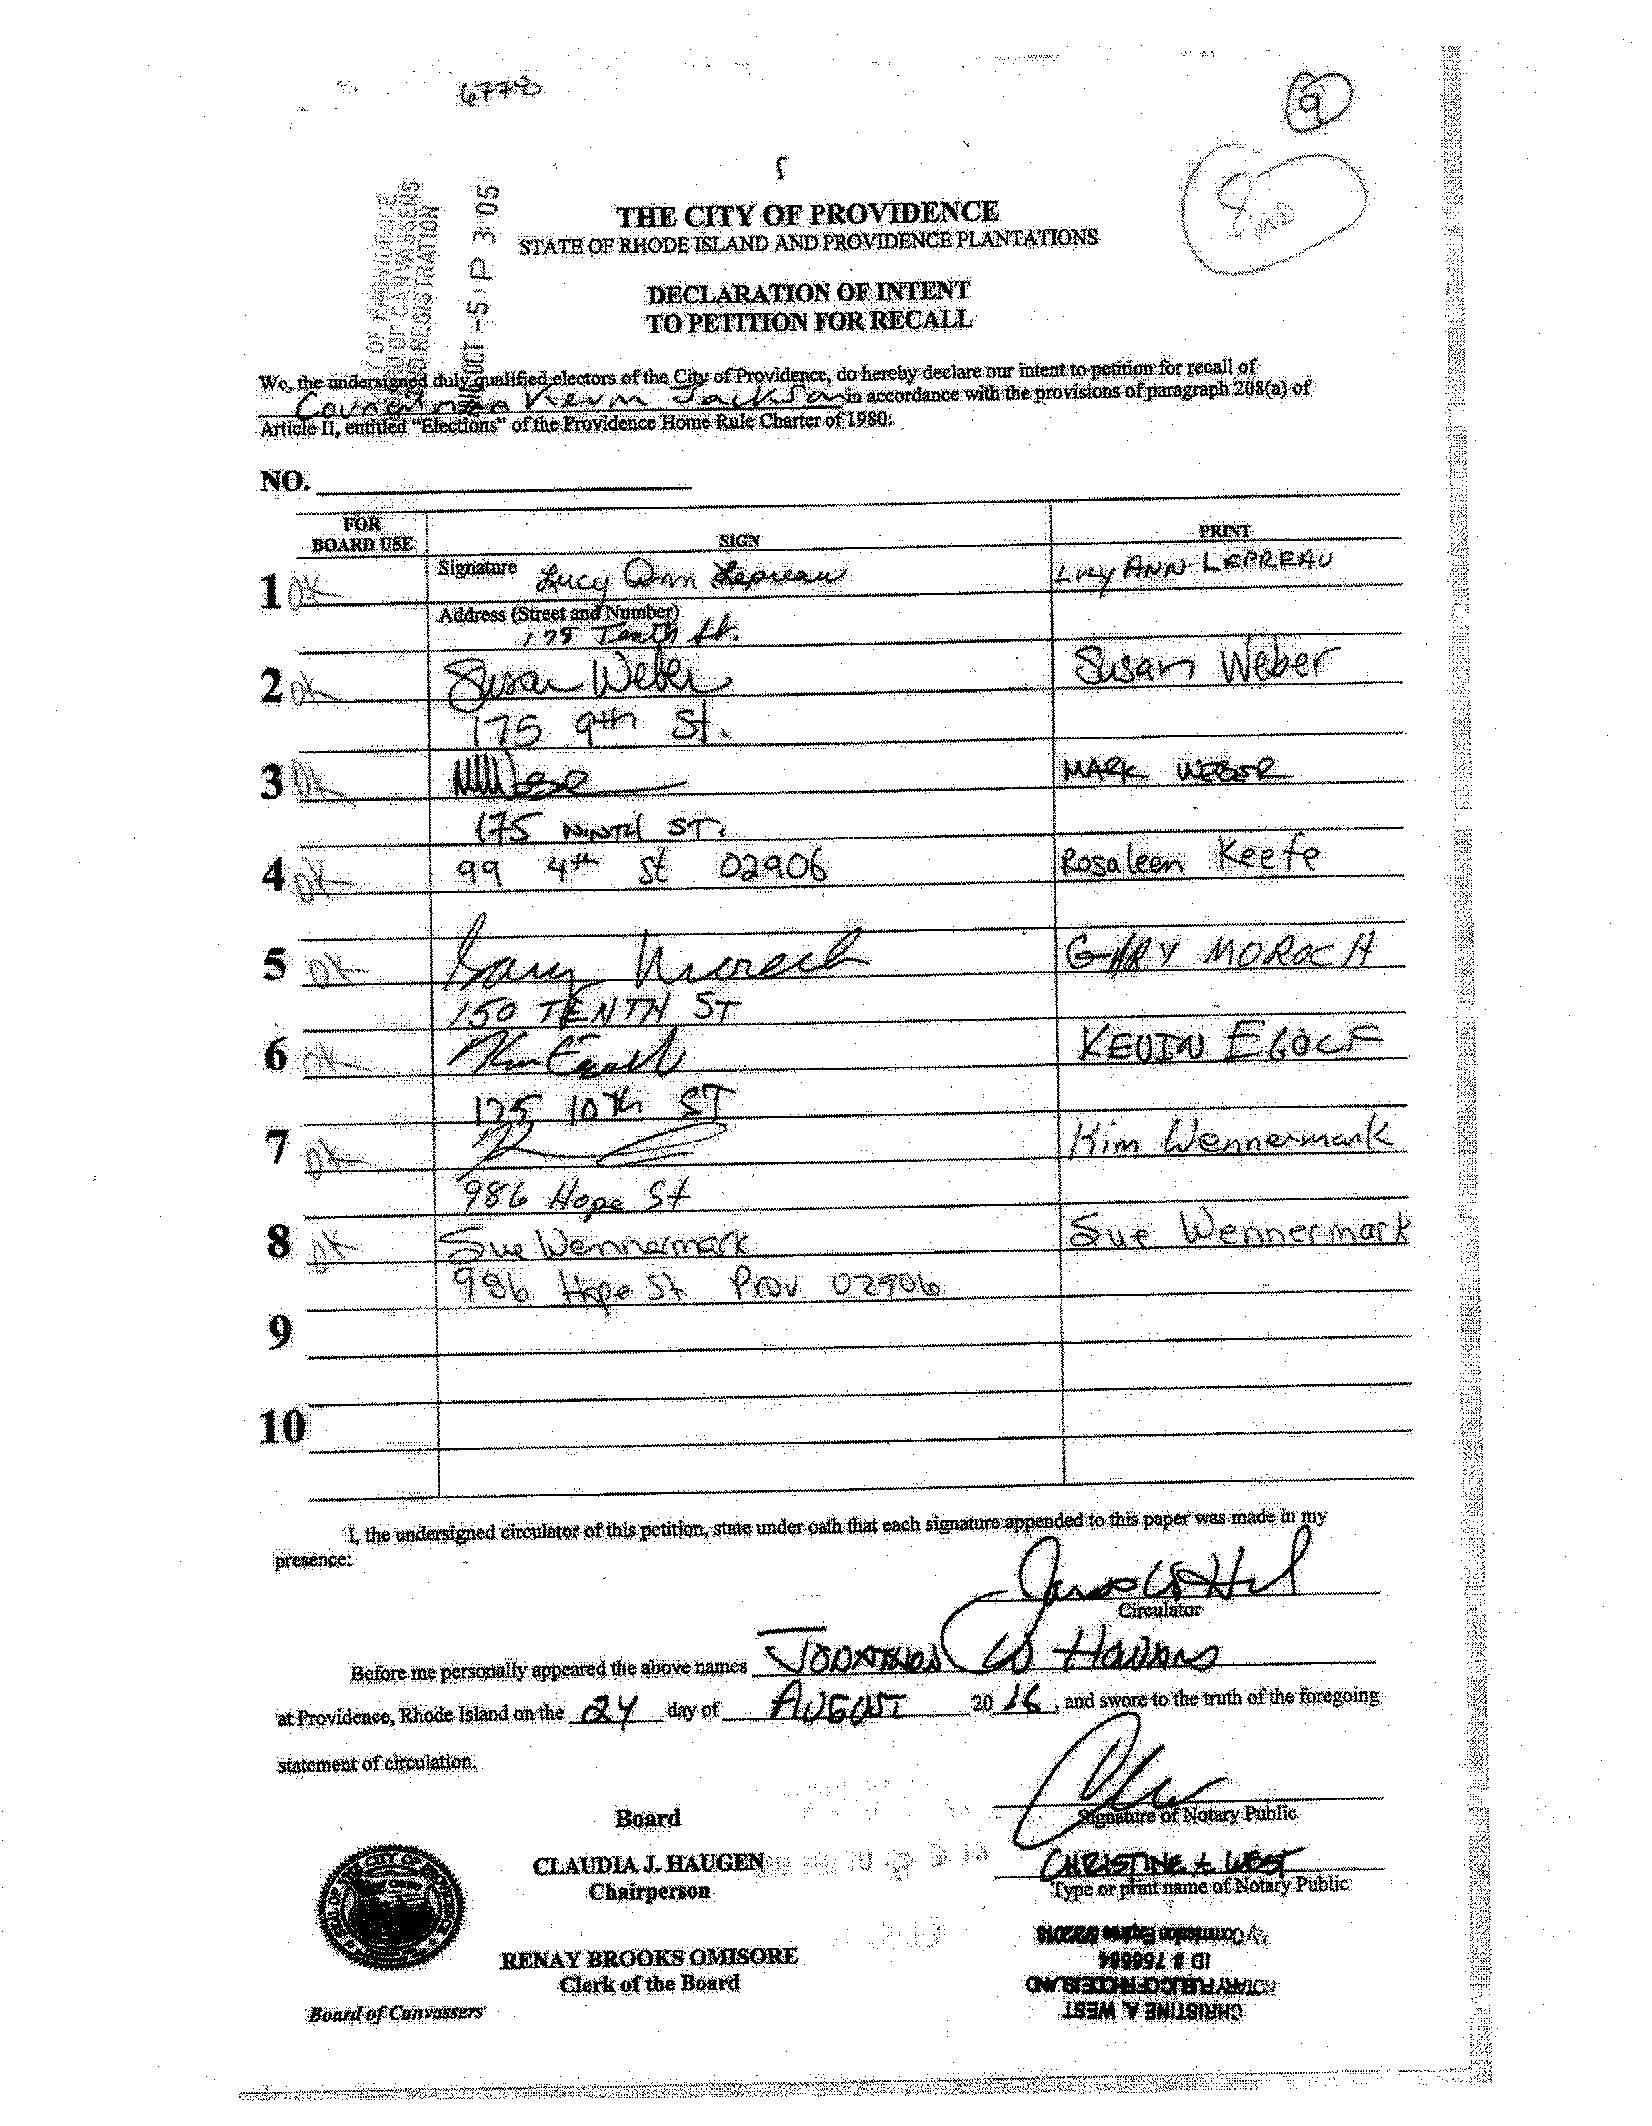 6778
9
8
THE CITY OF PROVIDENCE
STATE OF RHODE ISLAND AND PROVIDENCE PLANTATIONS
DECLARATION OF INTENT
TO PETITION FOR RECALL
OF CANVASSERS
REGISTRATION
OCT -5 P 3:05
We, the undersigned duly qualified electors of the City of Providence, do hereby declare our intent to petition for recall of
Councilman Kevin Jackson in accordance with the provisions of paragraph 208(a) of
Article II, entitled "Elections" of the Providence Home Rule Charter of 1980:
NO.
FOR BOARD USE SIGN PRINT
1 OK Signature Lucy Ann Lepreau Lucy ANN LEPREAU
Address (Street and Number)
175 Tenth St.
2 OK Susan Weber Susan Weber
175 9th St.
3 OK MARK WEBER
175 NINTH ST.
4 OK 99 4th St 02906 Rosaleen Keefe
5 OK Gary Moroch GARY MOROCH
150 TENTH ST
6 OK KEVIN EGOLF
125 10Th ST
7 OK Kim Wennermark
986 Hope St
8 OK Sue Wennermark Sue Wennermark
986 Hope St Prov 02906
9
10
I, the undersigned circulator of this petition, state under oath that each signature appended to this paper was made in my
presence:
Circulator
Before me personally appeared the above names
at Providence, Rhode Island on the 24 day of AUGUST 2016, and swore to the truth of the foregoing
statement of circulation.
Signature of Notary Public
CHRISTINE A WEST
Type or print name of Notary Public
Board
CLAUDIA J. HAUGEN
Chairperson
RENAY BROOKS OMISORE
Clerk of the Board
Board of Canvassers
CHRISTINE A. WEST
NOTARY PUBLIC OF RHODE ISLAND
ID # 756584